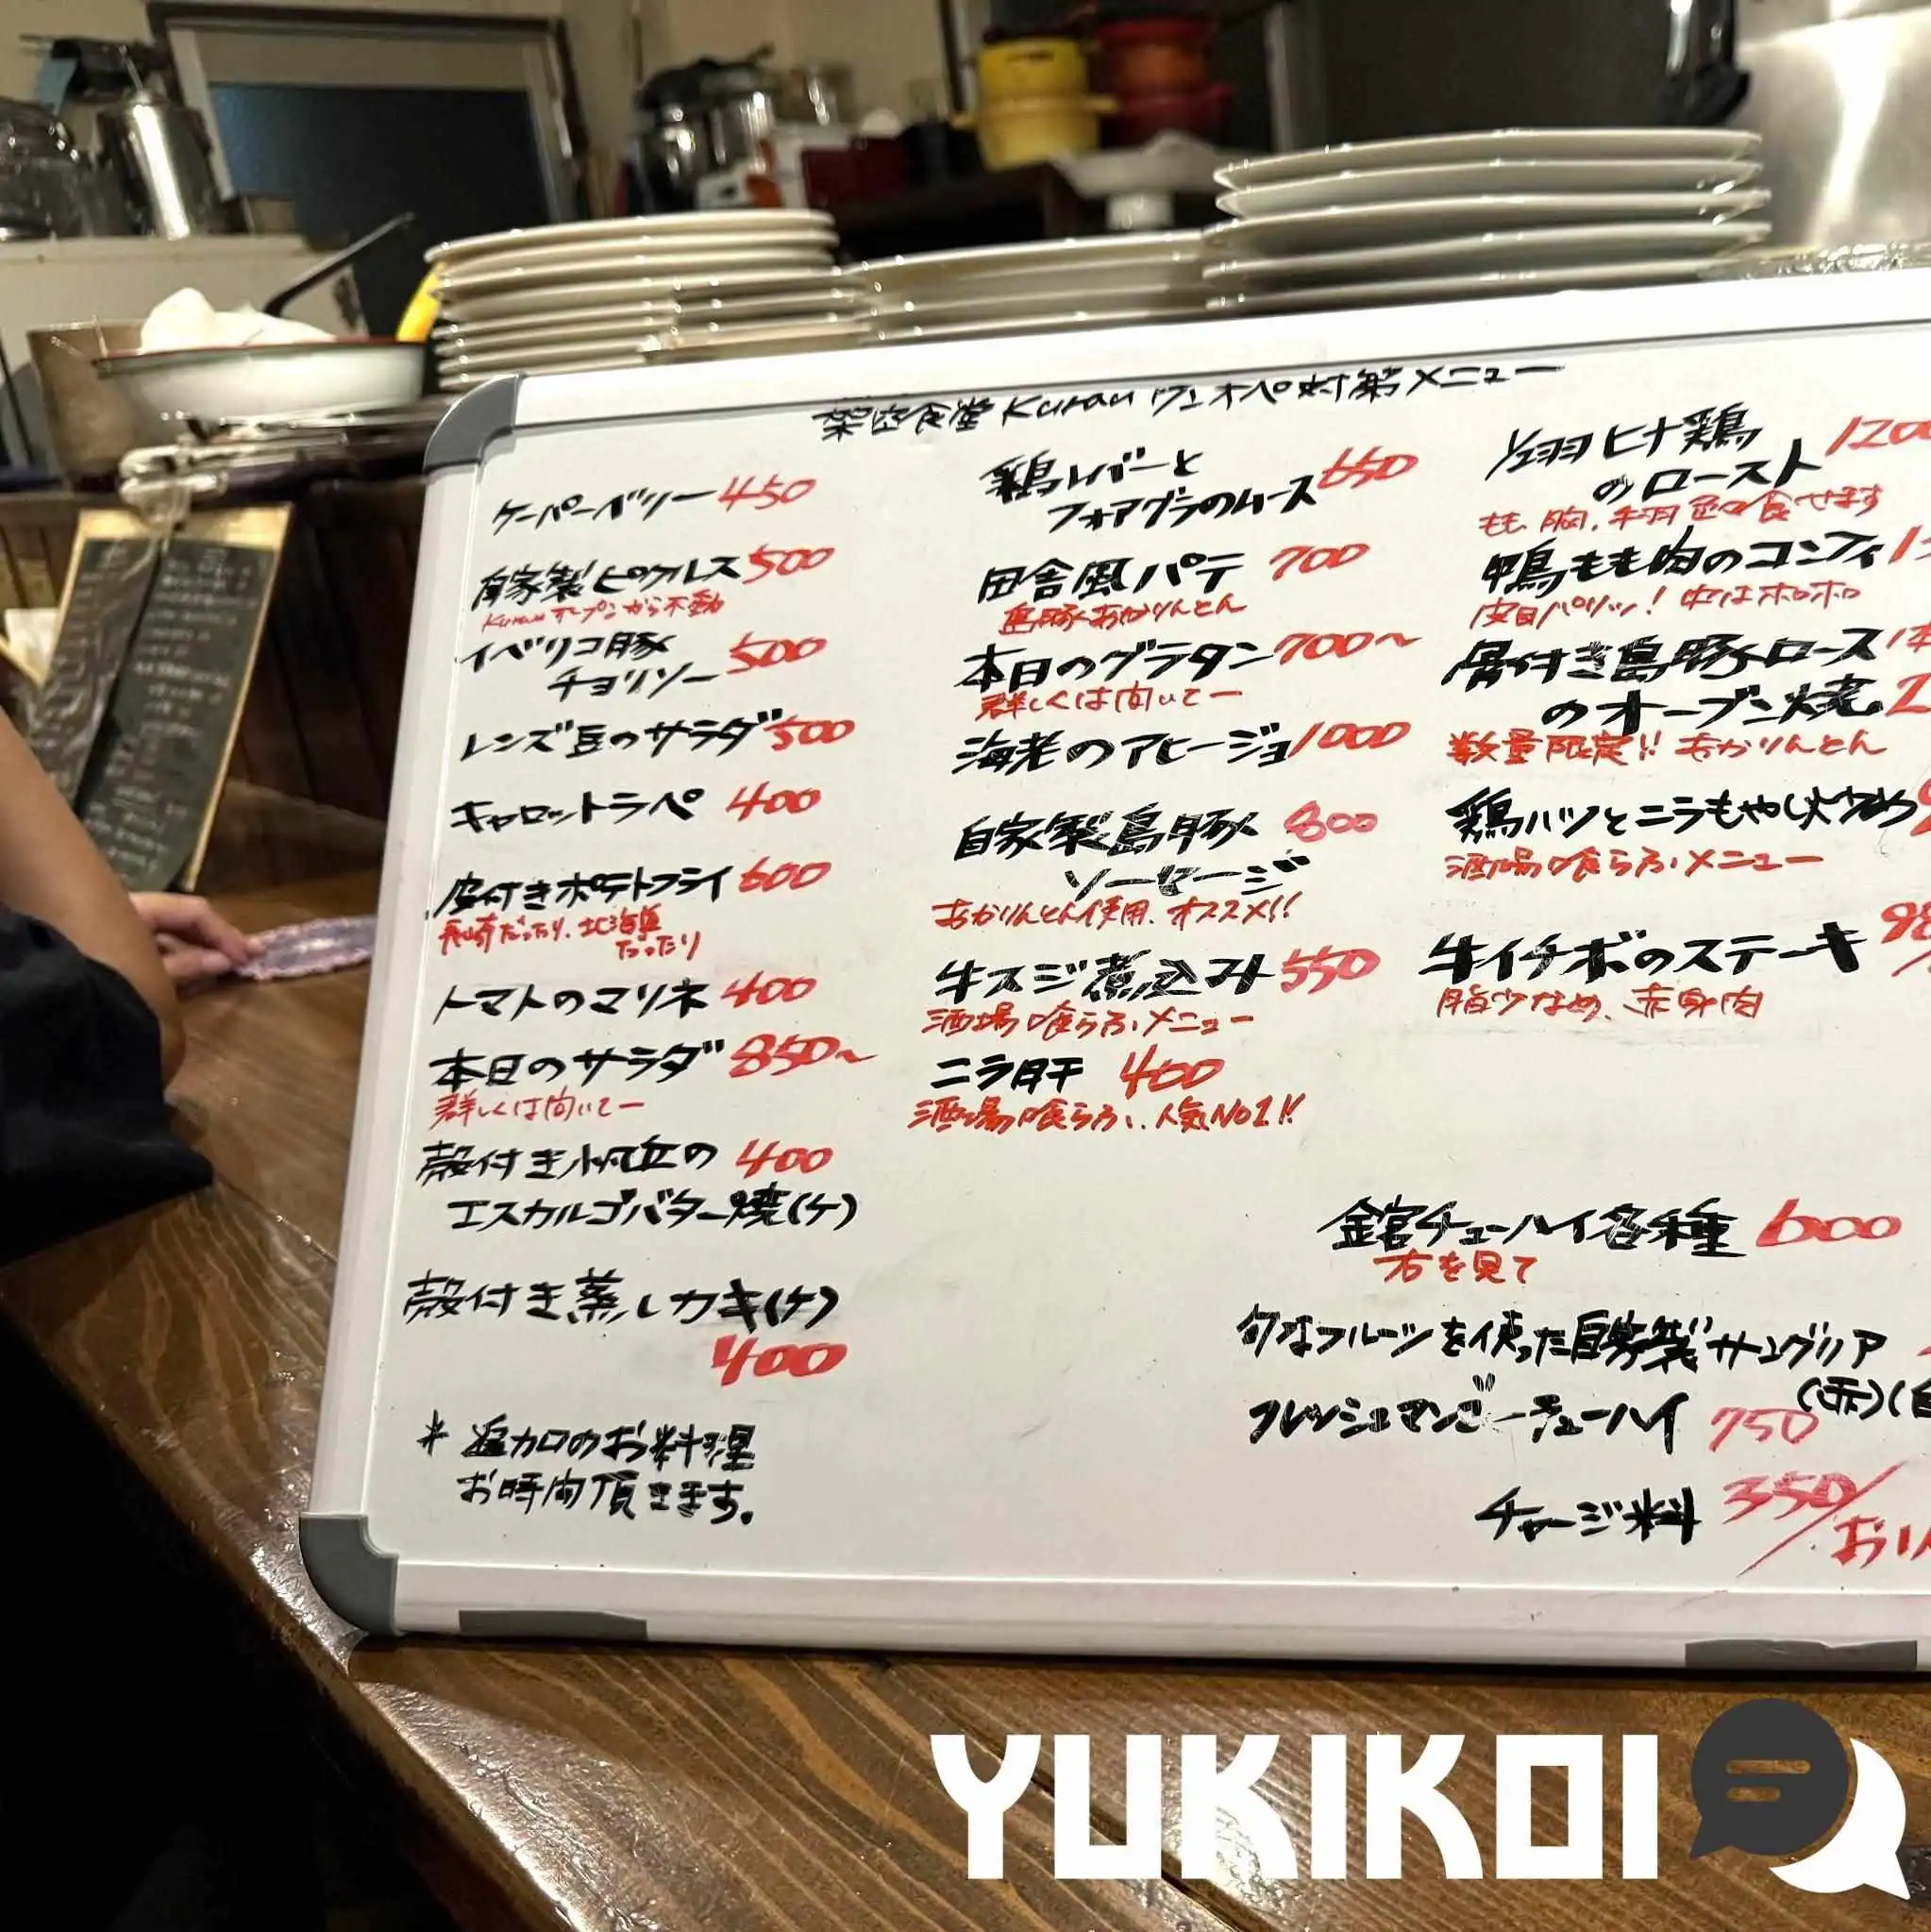 架空食堂 Kurau ワンオペ対策メニュー
ケーパーベリー 450
自家製ピクルス 500
Kurauオープンから不動
イベリコ豚
チョリソー 500
レンズ豆のサラダ 500
キャロットラペ 400
皮付きポテトフライ 600
長崎だったり、北海道
だったり
トマトのマリネ 400
本日のサラダ 850~
詳しくは聞いてー
殻付き帆立の 400
エスカルゴバター焼(ケ)
殻付き蒸しカキ(ケ)
400
* 追加のお料理
お時間頂きます。
鶏レバーと 650
フォアグラのムース
田舎風パテ 700
島豚あかりんとん
本日のグラタン 700~
詳しくは聞いてー
海老のアヒージョ 1000
自家製島豚 800
ソーセージ
あかりんとん使用、オススメ!!
牛スジ煮込み 550
酒場喰らふメニュー
ニラ肝 400
酒場喰らふ、人気No1!!
1/2羽ヒナ鶏 1200
のロースト
もも、胸、手羽 全て食せます
鴨もも肉のコンフィ
皮目パリッ! 中はホロホロ
骨付き島豚ロース
のオーブン焼
数量限定!! あかりんとん
鶏ハツとニラもやし炒め
酒場喰らふメニュー
牛イチボのステーキ
脂少なめ、赤身肉
金宮チューハイ各種 600
右を見て
旬なフルーツを使った自家製サングリア
(赤)(白
フレッシュマンゴーチューハイ 750
チャージ料 350/
お1人
YUKIKOI